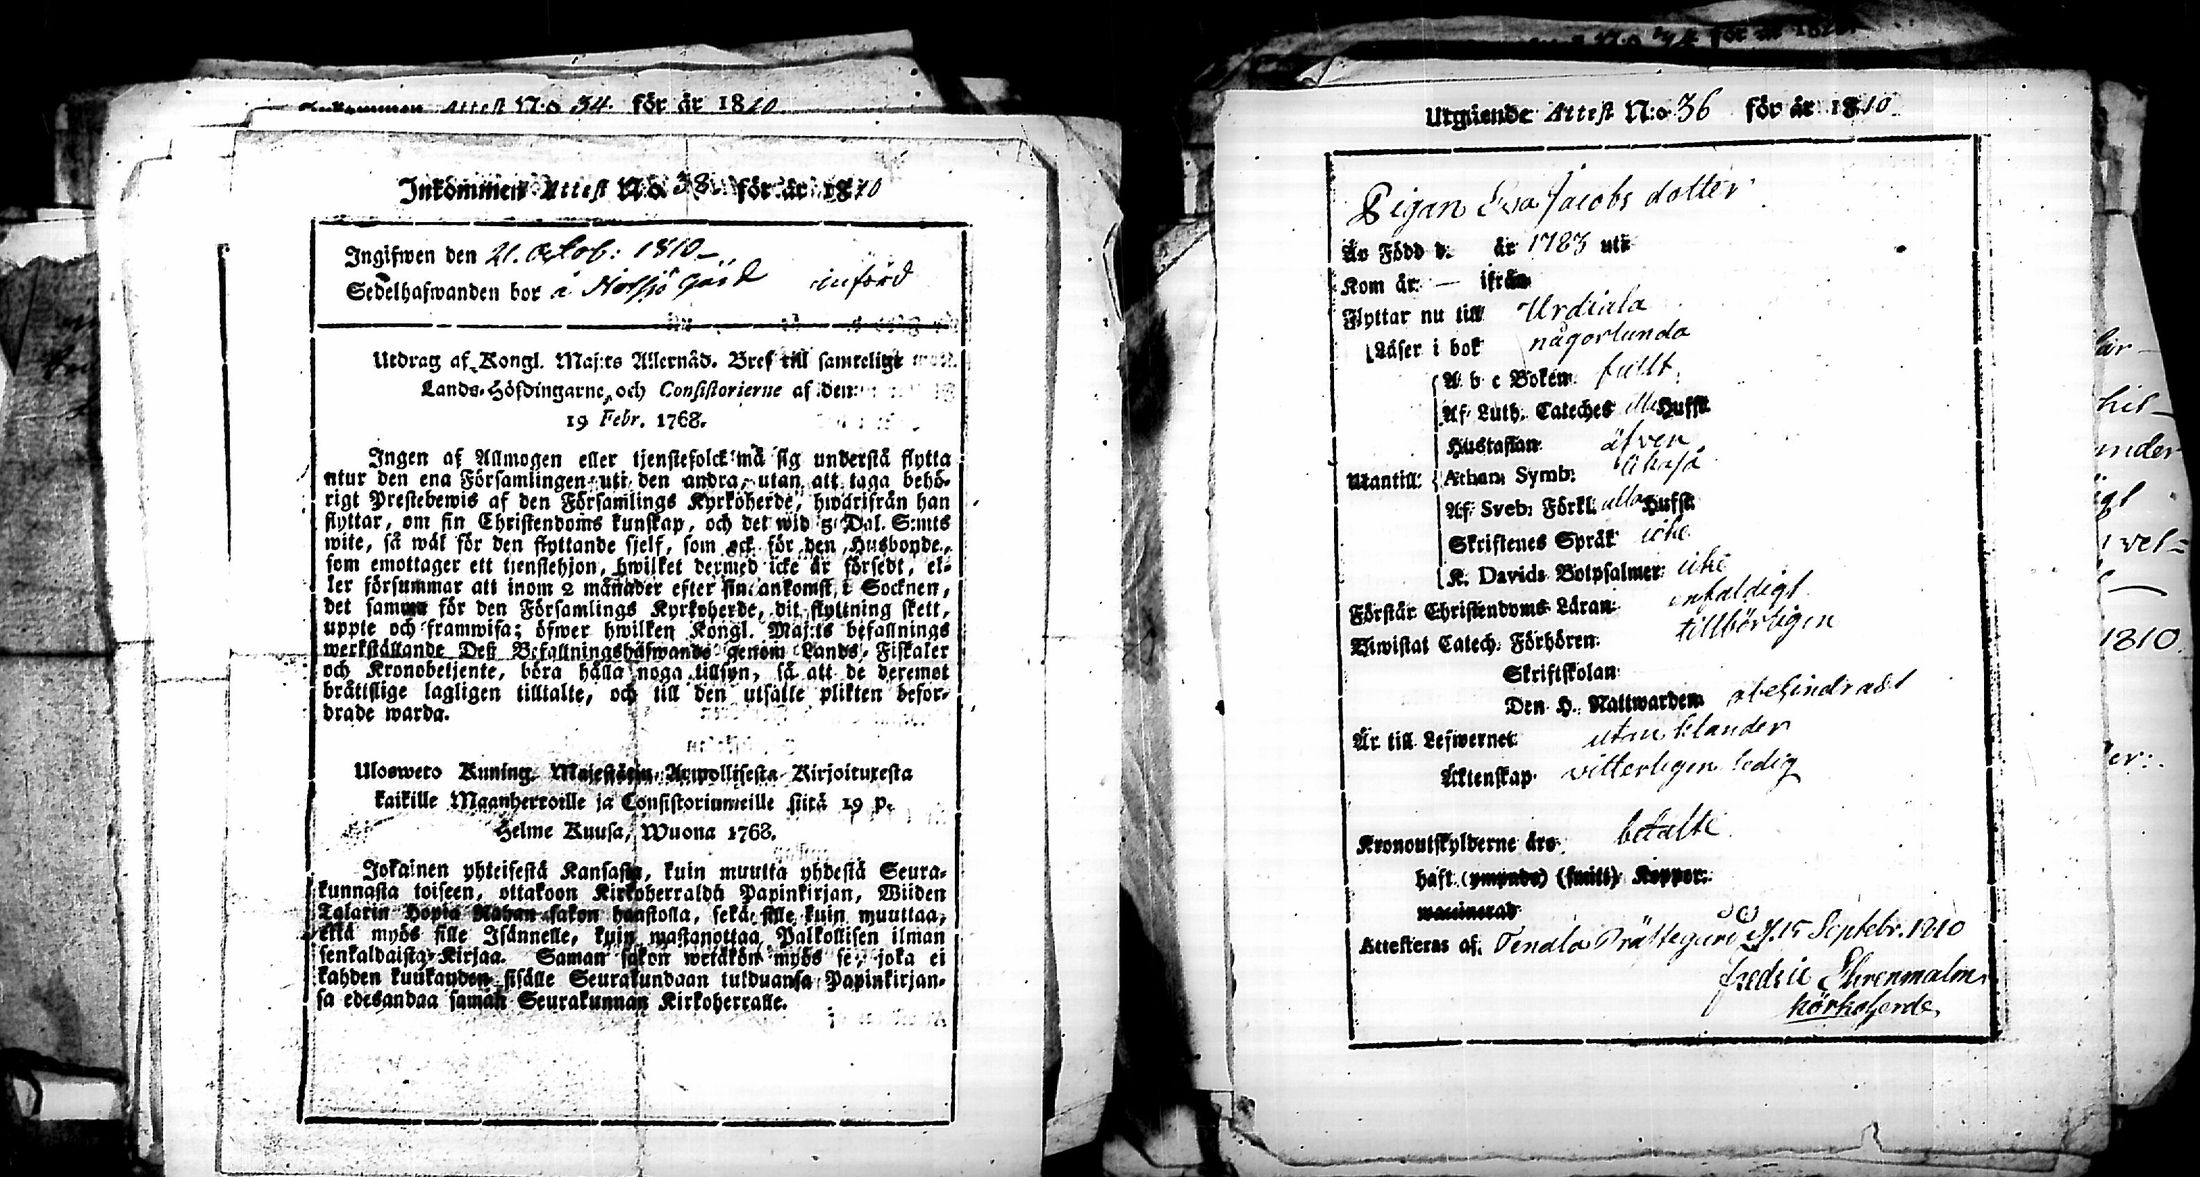 Attest N:o 34 för år 1810
Inkommen Attest N:o 38 för år 1810
Ingifwen den 21. Octob: 1810
Sedelhafwanden bor å Norsjö gård införd
Utdrag af Kongl. Maj:ts Allernåd. Bref till samtelige
Lands-Höfdingarne och Consistorierne af den
19 Febr. 1768.
Ingen af Allmogen eller tjenstefolck må sig understå flytta
utur den ena Församlingen uti den andra, utan att taga behö-
rigt Prestebewis af den Församlings Kyrkoherde, hwarifrån han
flyttar, om sin Christendoms kunskap, och det wid 5 Dal. S:mts
wite, så wäl för den flyttande sjelf, som ock för den Husbonde,
som emottager ett tienstehjon, hwilket dermed icke är försedt, el-
ler försummar att inom 2 månader efter sin ankomst i Socknen,
det samma för den Församlings Kyrkoherde, dit flyttning skett,
uppte och framwisa; öfwer hwilken Kongl. Maj:ts befallnings
werkställande Deß Befallningshafwande genom Lands-Fiskaler
och Kronobetjente, böra hålla noga tillsyn, så att de deremot
bråttslige lagligen tilltalte, och till den utsatte plikten befor-
drade warda.
Ulosweto Kuning. Majestätin Armollisesta Kirjoituxesta
kaikille Maanherroille ja Consistoriumeille siitä 19 p.
Helme Kuusa, Wuona 1768.
Jokainen yhteisestä Kansasta, kuin muutta yhdestä Seura-
kunnasta toiseen, ottakoon Kirkoherralda Papinkirjan, Wiiden
Talarin Hopia Rahan sakon haastolla, sekä sille kuin muuttaa,
että myös sille Isännelle, kuin wastanottaa Palkollisen ilman
senkaldaista Kirjaa. Saman sakon wetäkön myös se, joka ei
kahden kuukauden sisälle Seurakundaan tulduansa Papinkirjan-
sa edesandaa saman Seurakunnan Kirkoherralle.
för år 18
Utgående Attest N:o 36 för år 1810
Pigan Eva Jacobs dotter
Är Född d. år 1783 uti
Kom år — ifrån
Flyttar nu till Urdiala
Läser i bok någorlunda
A b c Boken fullt
Af Luth. Cateches alla Hufst.
Hustaflan äfven
Utantill: Athan. Symb: likaså
Af Sveb. Förkl. alla Hufst.
Skriftenes Språk icke
K. Davids Botpsalmer icke
Förstår Christendoms Läran enfaldigt
Biwistat Catech. Förhören tillbörligen
Skriftskolan
Den H. Nattwarden obehindradt
Är till Lefwernet utan klander
Äktenskap vitterligen ledig
Kronoutskylderne äro betalte
haft (ympade) (smitt) Koppor
waccinerad
Attesteras af Tenala Prästegård d. 15 Septebr. 1810
fredric Ehrenmalm
körkoherde
1810.